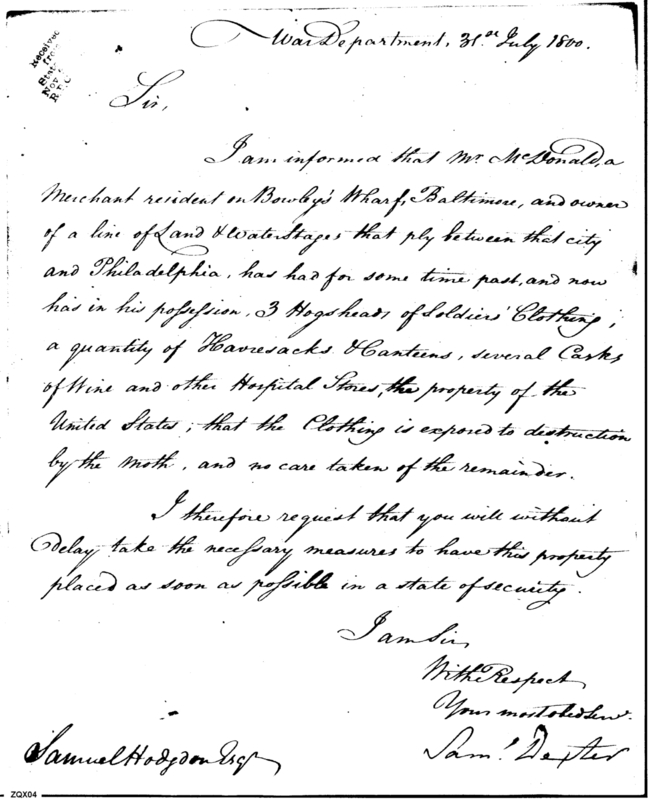 War Department, 31st July 1800.
Received
from
State
Nov
R.F.C
Sir,
I am informed that Mr. McDonald, a
Merchant resident on Bowley's Wharf, Baltimore, and owner
of a line of Land & Water Stages that ply between that city
and Philadelphia, has had for some time past, and now
has in his possession, 3 Hogsheads of Soldiers' Clothing;
a quantity of Havresacks & Canteens, several Casks
of Wine and other Hospital Stores, the property of the
United States; that the Clothing is exposed to destruction
by the moth, and no care taken of the remainder.
I therefore request that you will without
delay take the necessary measures to have this property
placed as soon as possible in a state of security.
I am Sir,
With Respect
Your most obed Serv.
Saml. Dexter
Samuel Hodgdon Esqr
ZQX04